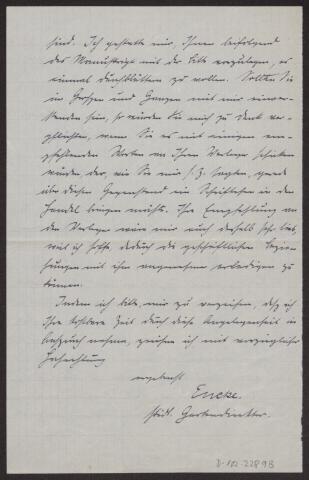 sind. Ich gestatte mir, Ihnen beifolgend
das Manuskript mit der Bitte vorzulegen, es
einmal durchblättern zu wollen. Sollten Sie
im Großen und Ganzen mit mir einver-
standen sein, so würden Sie mich zu Dank ver-
pflichten, wenn Sie es mit einigen em-
pfehlenden Worten an Ihren Verleger schicken
würden der, wie Sie mir s. Z. sagten, gerne
über diesen Gegenstand ein Schriftchen in den
Handel bringen möchte. Ihre Empfehlung an
den Verleger wäre mir auch deshalb sehr lieb,
weil ich hoffe dadurch die geschäftlichen Bezie-
hungen mit ihm angenehm erledigen zu
können.
Indem ich bitte, mir zu verzeihen, daß ich
Ihre kostbare Zeit durch diese Angelegenheit in
Anspruch nehme, zeichne ich mit vorzüglicher
Hochachtung
ergebenst
Encke.
städt. Gartendirektor.